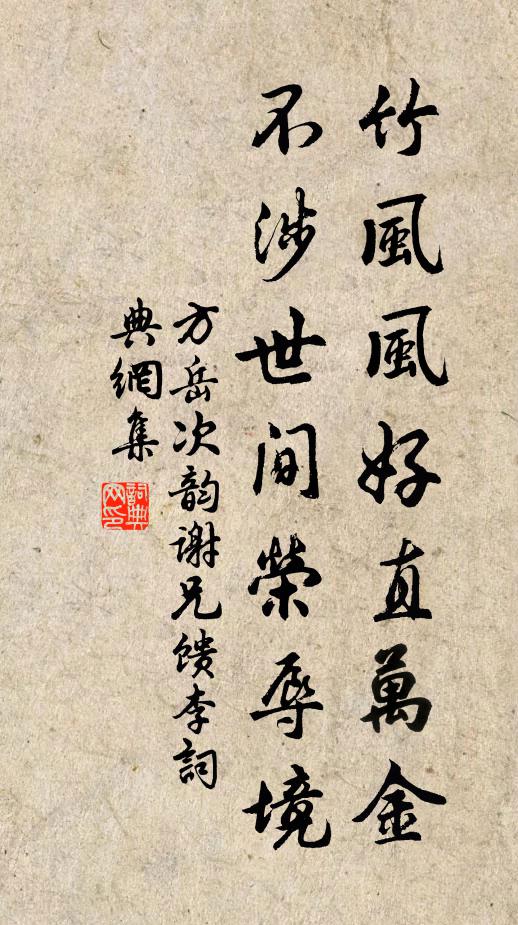 竹風風好直萬金
不涉世間榮辱境
方岳次韵谢兄馈李詞
典網集
詞典
网印